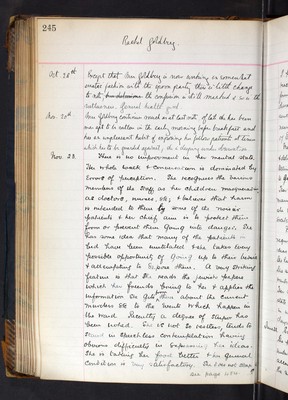 245
Rachel Goldberg.
Oct. 28th Except that Mrs Goldberg is now working in somewhat
better fashion with the sewing party, there is little change
to note, her delusions the confusion is still marked & so is the
restlessness. General health good
Nov. 20th Mrs Goldberg continues
one apt to be restless in the early morning before breakfast and
has an unpleasant habit of exposing her fellow patients of terms
which to be guarded against, she is sleeping under
Nov. 28. There is no improvement in her mental state.
Her whole speech & conversation is dominated by
errors of perception. She recognises the various
members of the Staff as her children masquerading
as doctors, nurses, &c; & believes that harm
is intended to them by some of the nurses
patients & her chief aim is to protect them
from or prevent them going into danger. She
has some idea that many of the patients in
bed have been mutilated & she takes every
possible opportunity of going up to their beds
& attempting to expose them. A very striking
feature is that she reads the Jewish papers
which her friends bring to her & applies the
information she gets from them about the current
murders &c to the events which happen in
the ward. Recently a degree of stupor has
been noted. She is not so restless, tends to
stand in speechless contemplation having
obvious difficulty in expressing her ideas.
She is taking her food better & her general
condition is very satisfactory. She does not sleep
see page